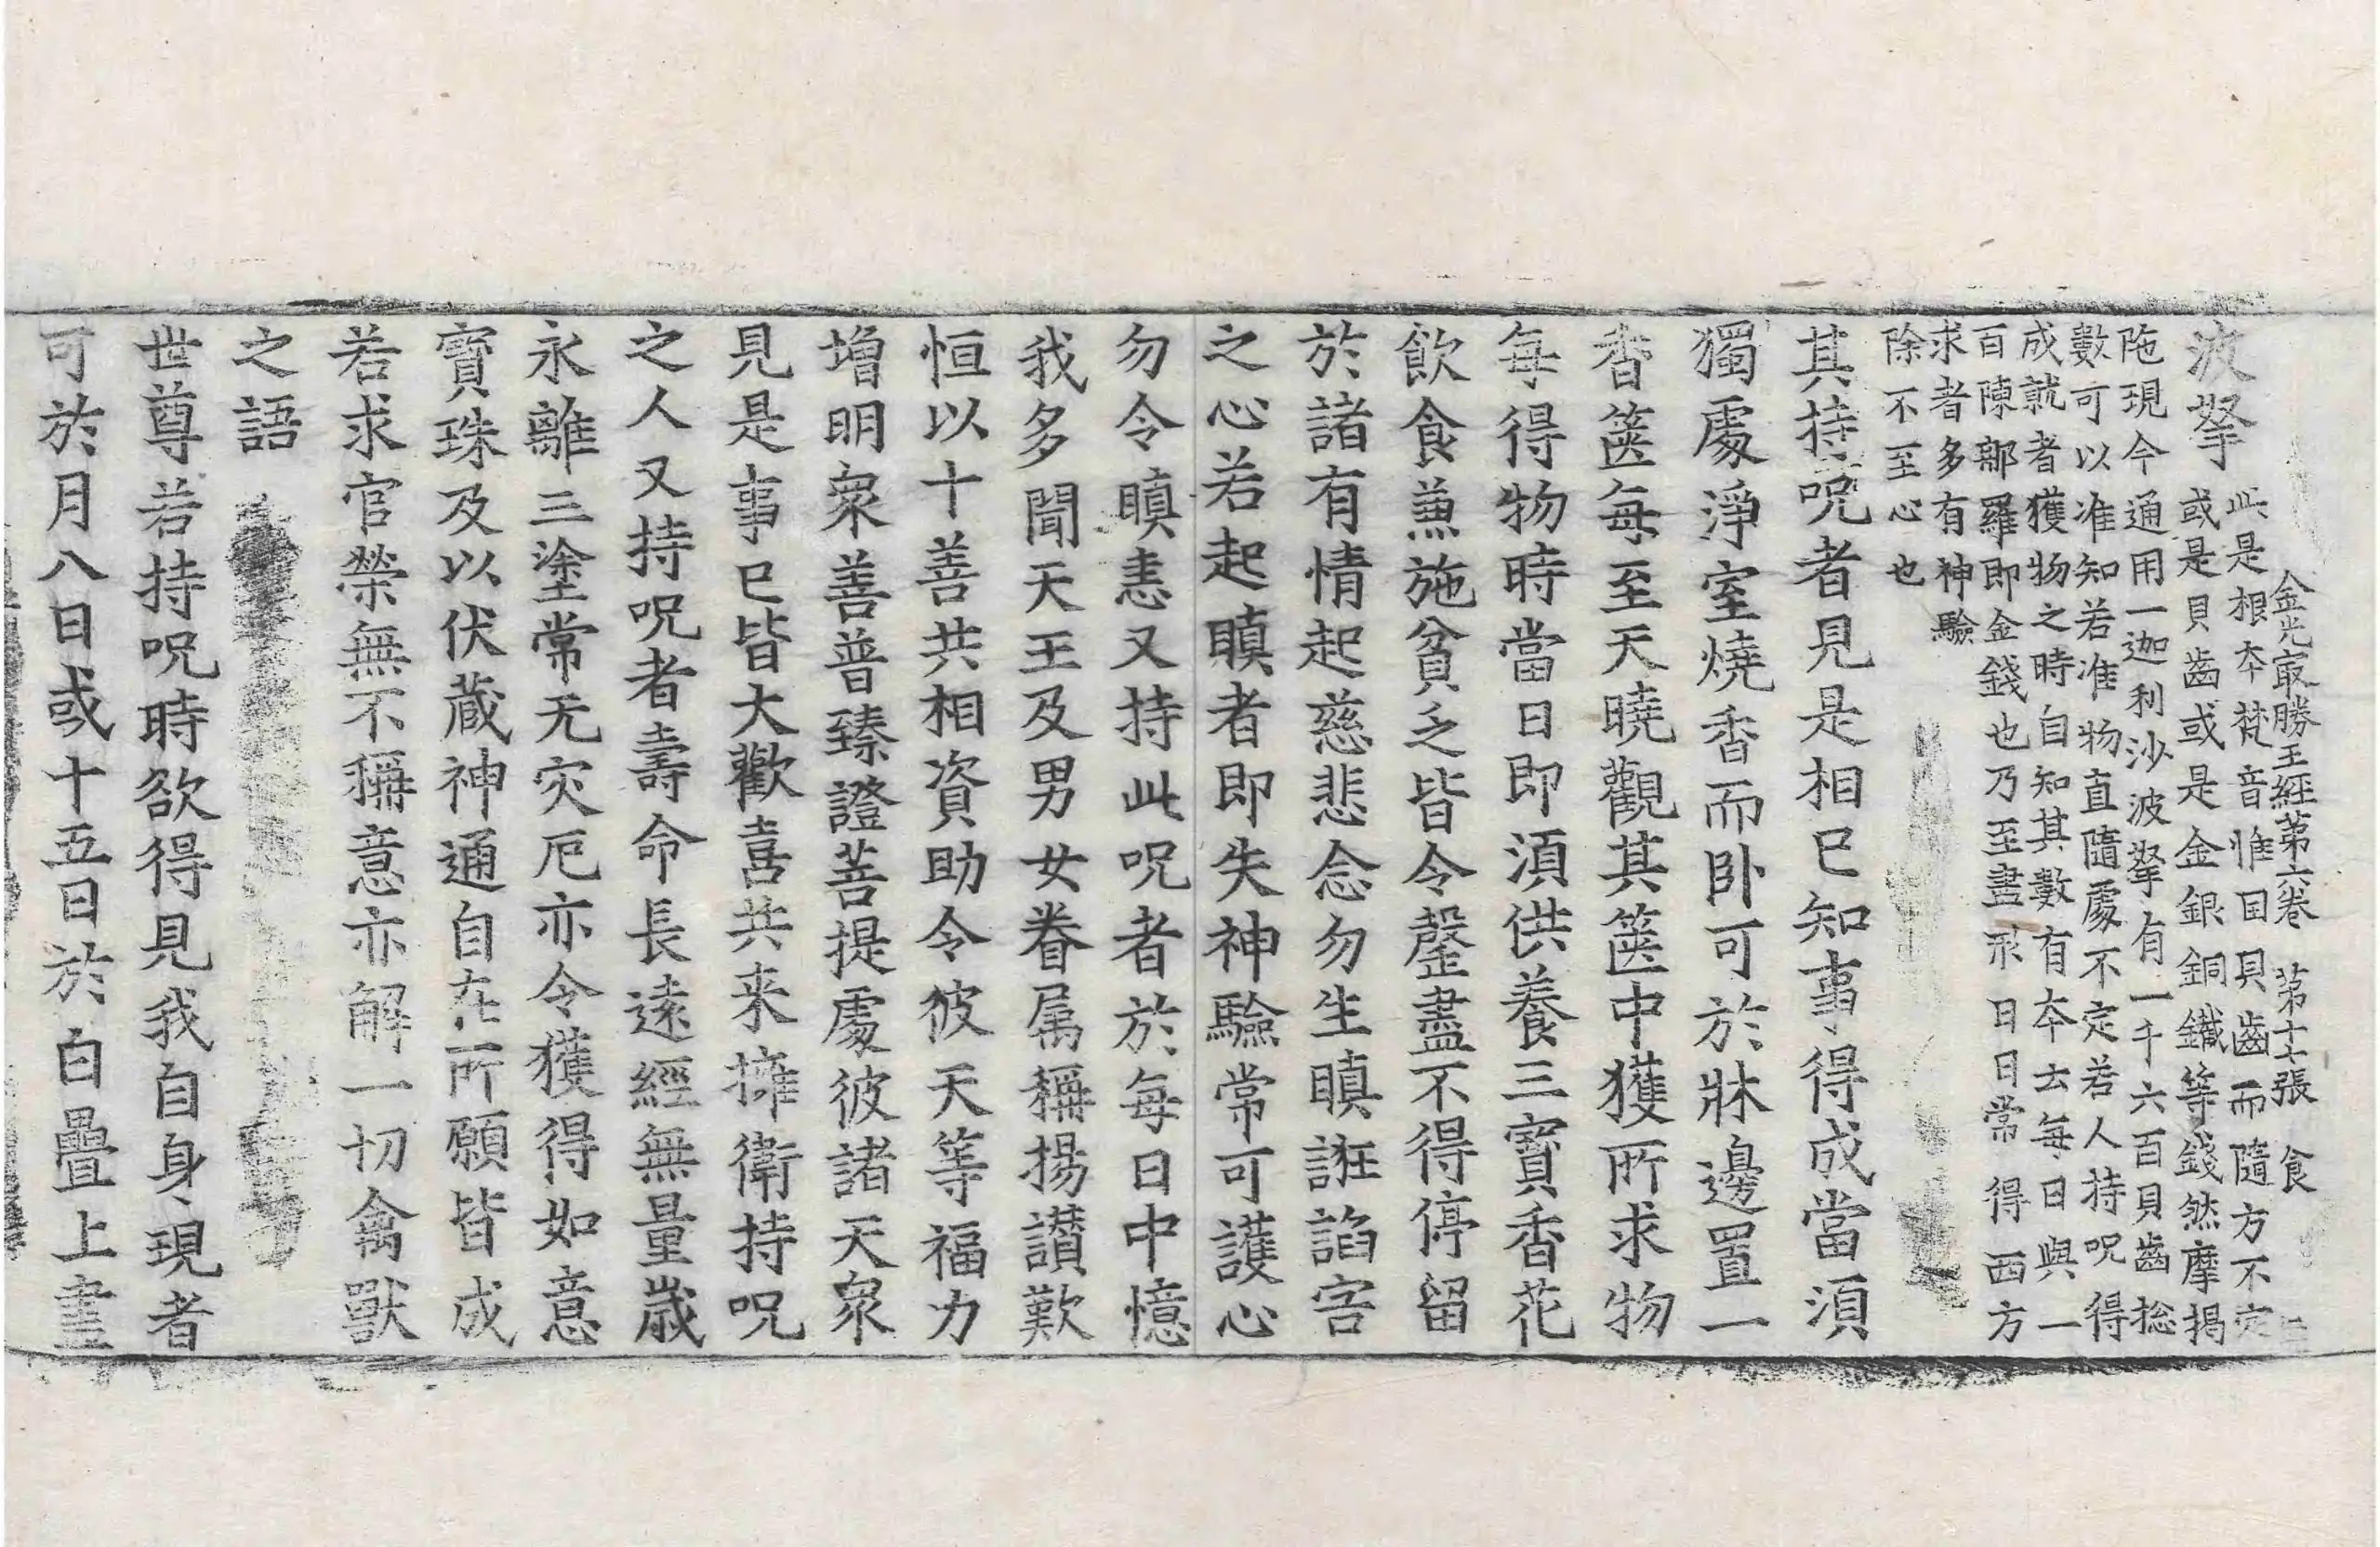 金光㝡勝王經第六卷　第十七張　食
波拏 此是根本梵音惟目貝齒而隨方不定
或是貝齒或是金銀銅鐵等錢然摩揭
陁現今通用一迦利沙波拏有一千六百貝齒捴
數可以准知若准物直隨處不定若人持呪得
成就者獲物之時自知其數有本云每日與一
百陳那羅即金錢也乃至盡形日日常得西方
求者多有神驗
除不至心也
其持呪者見是相已知事得成當須
獨處淨室燒香而卧可於牀邊置一
香篋每至天曉觀其篋中獲所求物
每得物時當日即須供養三寶香花
飲食兼施貧乏皆令罄盡不得停留
於諸有情起慈悲念勿生瞋誑諂害
之心若起瞋者即失神驗常可護心
勿令瞋恚又持此呪者於每日中憶
我多聞天王及男女眷属稱揚讃歎
恒以十善共相資助令彼天等福力
增明衆善普臻證菩提處彼諸天衆
見是事已皆大歡喜共来擁衛持呪
之人又持呪者壽命長遠經無量歲
永離三塗常无灾厄亦令獲得如意
寶珠及以伏蔵神通自在所願皆成
若求官榮無不稱意亦解一切禽獸
之語
世尊若持呪時欲得見我自身現者
可於月八日或十五日於白疊上畫